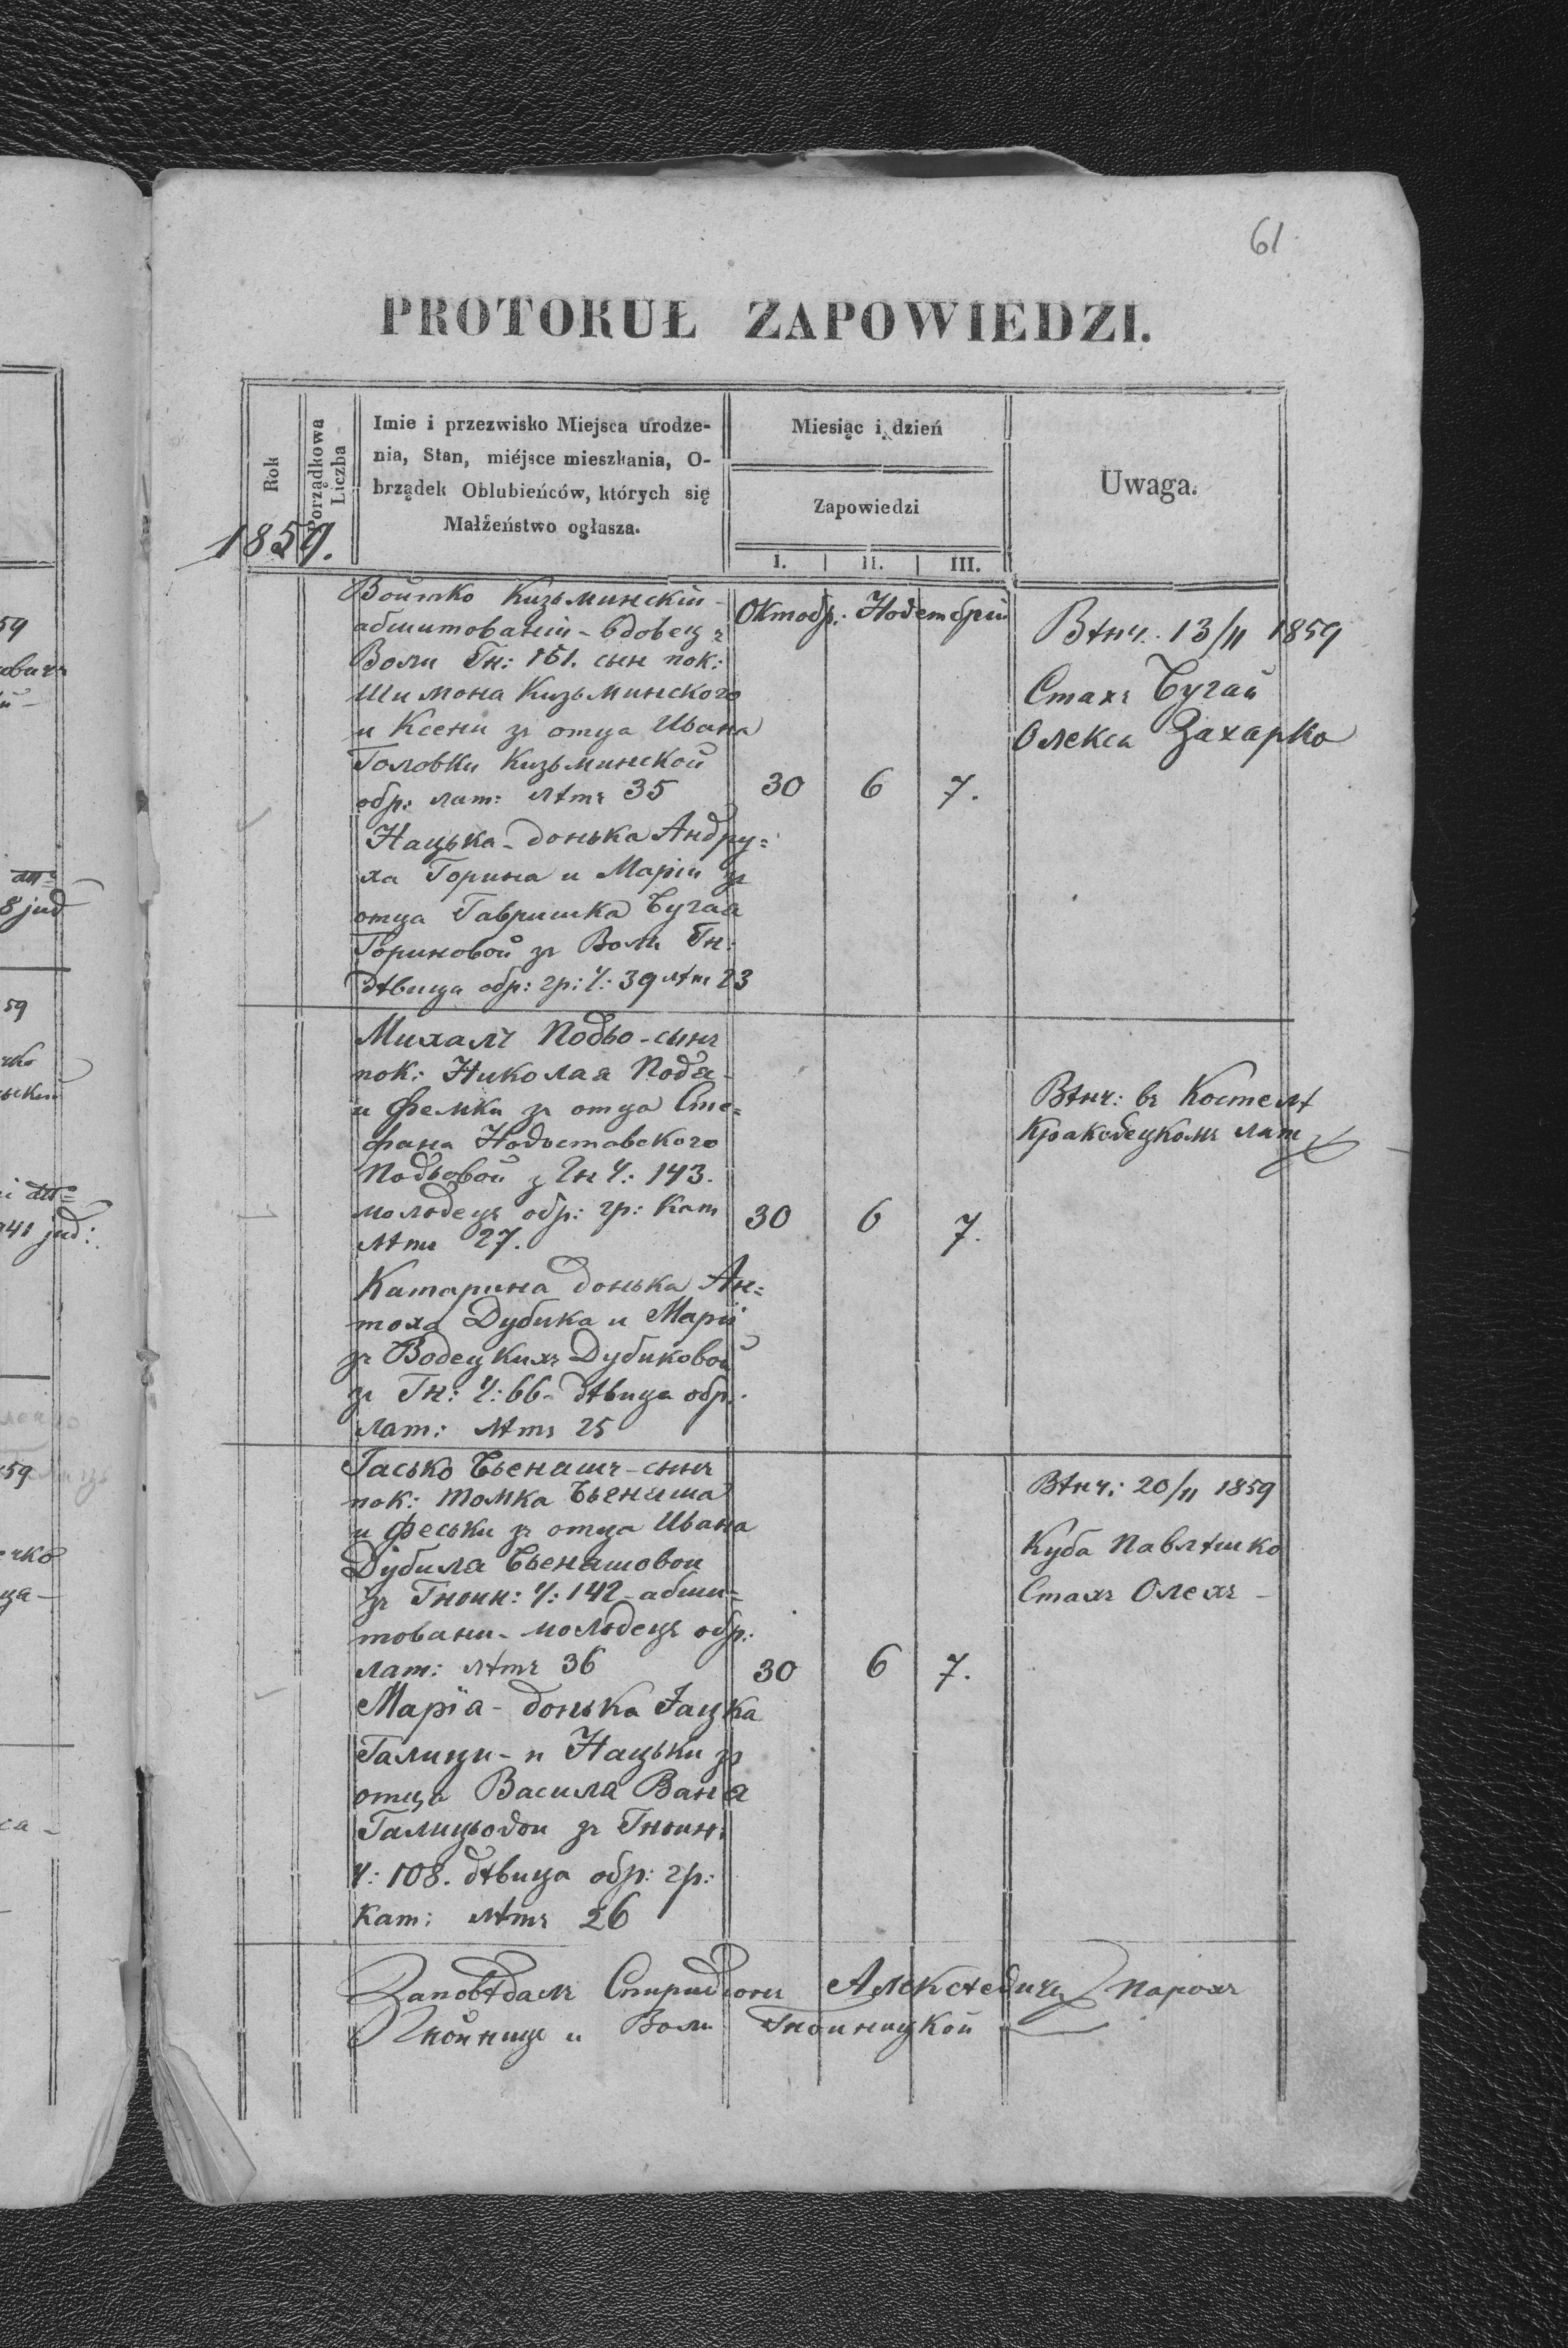 61
PROTOKUŁ ZAPOWIEDZI.
Rok
Porządkowa
Liczba
Imie i przezwisko Miejsca urodze-
nia, Stan, miéjsce mieszkania, O-
brządek Oblubieńców, których się
Małżeństwo ogłasza.
Miesiąc i dzień
Zapowiedzi
I. II. III.
Uwaga.
1859.
Войтко Кизьминскій -
абшитованій - вдовец з
Воли Гн: 151. сын пок:
Шимона Кизьминского
и Ксени зъ отца Ивана
Головки Кизьминской
обр: лат: лѣтъ 35
Нацька - донька Андру=
ха Горина и Маріи зъ
отца Гавришка Бугая
Гориновой зъ Воли Гн:
дѣвица обр: гр: Ч: 39 лѣт 23
Октобр: Новембрій
30 6 7.
Вѣнч: 13/11 1859
Стахъ Бугай
Олекса Захарко
Михалъ Подьо - сынъ
пок: Николая Подя -
и Фемки зъ отца Сте=
фана
Подьовой з Гн Ч: 143.
молодецъ обр: гр: Кат
лѣтъ 27.
Катарина донька Ан=
тоха Дубика и Маріи
зъ Водецкихъ Дубиковой
зъ Гн: Ч: 66 - дѣвица обр:
лат: лѣтъ 25
30 6 7.
Вѣнч: въ Костелѣ
Краковецкомъ лат
Гасько Бьенашъ - сынъ
пок: Томка Бьенаша
и Феськи зъ отца Ивана
Дубиля Бьенашовои
зъ Гноин: Ч: 142 - абши=
товани - молодецъ обр:
лат: лѣтъ 36
Марїа - донька Яцка
Галици - и Нацьки зъ
отца Василя Ваня
Галицьовои зъ Гноин:
Ч: 108. дѣвица обр: гр:
Кат: лѣтъ 26
30 6 7.
Вѣнч: 20/11 1859
Куба Павлѣшко
Стахъ Олехъ -
Заповѣдалъ Спиридіонъ Алексѣевичъ Парохъ
Гнойницѣ и Воли Гнойницкой